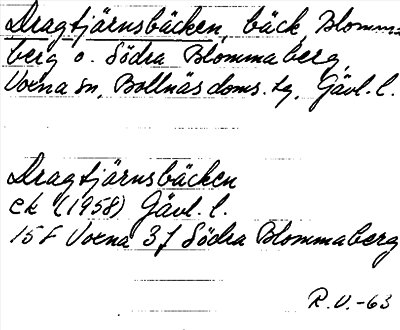 Dragtjärnsbäcken, bäck, Blomma-
berg o. Södra Blommaberg,
Voxna sn, Bollnäs doms. tg, Gävl. l.
Dragtjärnsbäcken
ek (1958) Gävl. l.
15F Voxna 3j Södra Blommaberg
R.V.-63